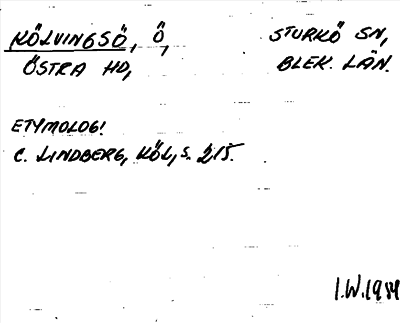 KÖLVINGSÖ, Ö, STURKÖ SN,
ÖSTRA HD, BLEK. LÄN.
ETYMOLOG!
C. LINDBERG, KÖL, S. 215.
I.W. 1984